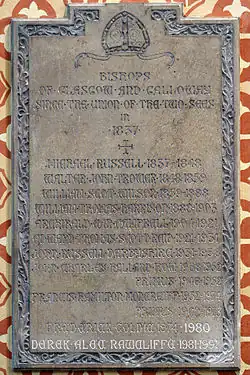 BISHOPS
OF GLASGOW AND GALLOWAY
SINCE THE UNION OF THE TWO SEES
IN
1837
MICHAEL RUSSELL 1837-1848
WALTER JOHN TROWER 1848-1859
WILLIAM SCOT WILSON 1859-1888
WILLIAM THOMAS HARRISON 1888-1903
ARCHIBALD EAN CAMPBELL 1904-1921
EDWARD THOMAS SCOTT REID 1921-1931
JOHN RUSSELL DARBYSHIRE 1931-1938
JOHN CHARLES HALLAND HOW 1938-1952
PRIMUS 1946-1952
FRANCIS HAMILTON MONCREIFF 1952-1974
PRIMUS 1962-1973
FREDERICK GOLDIE 1974-1980
DEREK ALEC RAWCLIFFE 1981-1991